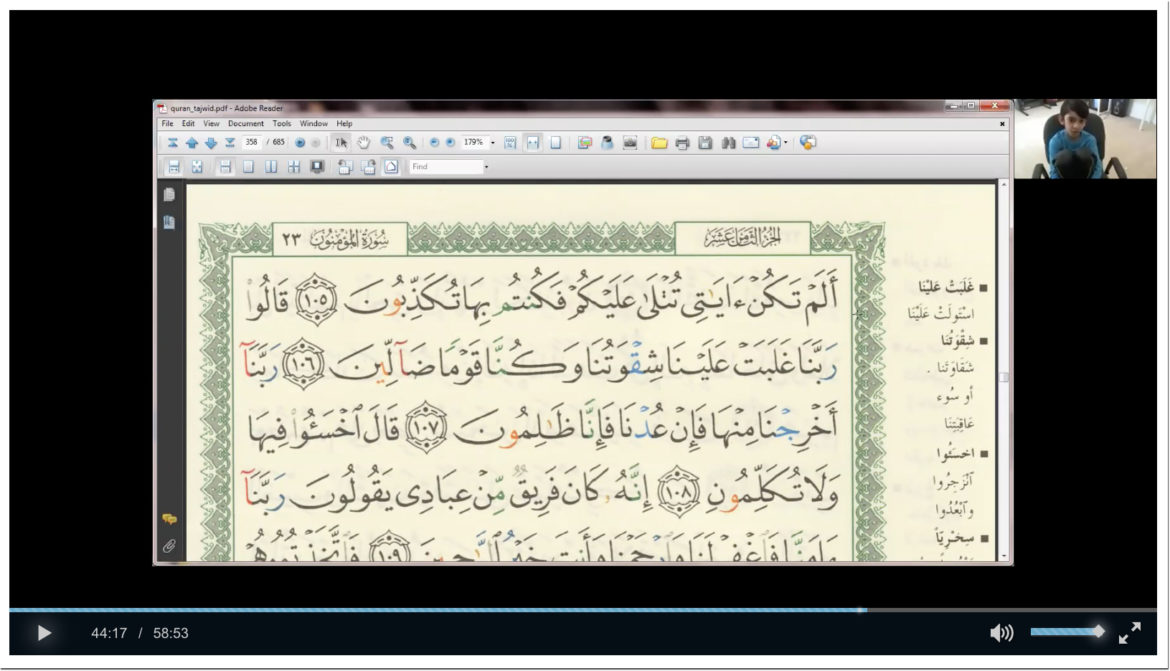 quran_tajwid.pdf - Adobe Reader
File Edit View Document Tools Window Help
358 / 685 179%
Find
سُورَةُ المُؤْمِنُون ٢٣
الجزء الثامن عشر
أَلَمْ تَكُنْ ءَايَٰتِى تُتْلَىٰ عَلَيْكُمْ فَكُنتُم بِهَا تُكَذِّبُونَ ١٠٥ قَالُوا۟
رَبَّنَا غَلَبَتْ عَلَيْنَا شِقْوَتُنَا وَكُنَّا قَوْمًا ضَآلِّينَ ١٠٦ رَبَّنَآ
أَخْرِجْنَا مِنْهَا فَإِنْ عُدْنَا فَإِنَّا ظَٰلِمُونَ ١٠٧ قَالَ ٱخْسَـُٔوا۟ فِيهَا
وَلَا تُكَلِّمُونِ ١٠٨ إِنَّهُۥ كَانَ فَرِيقٌ مِّنْ عِبَادِى يَقُولُونَ رَبَّنَآ
١٠٩
■ غَلَبَتْ عَلَيْنَا
اسْتَولَتْ عَلَيْنَا
■ شِقْوَتُنَا
شَقَاوَتنا .
أو سُوء
عَاقِبَتِنَا
■ اخسَئُوا
انْزَجِرُوا
وَابْعُدُوا
■ سِخْرِيّاً
44:17 / 58:53